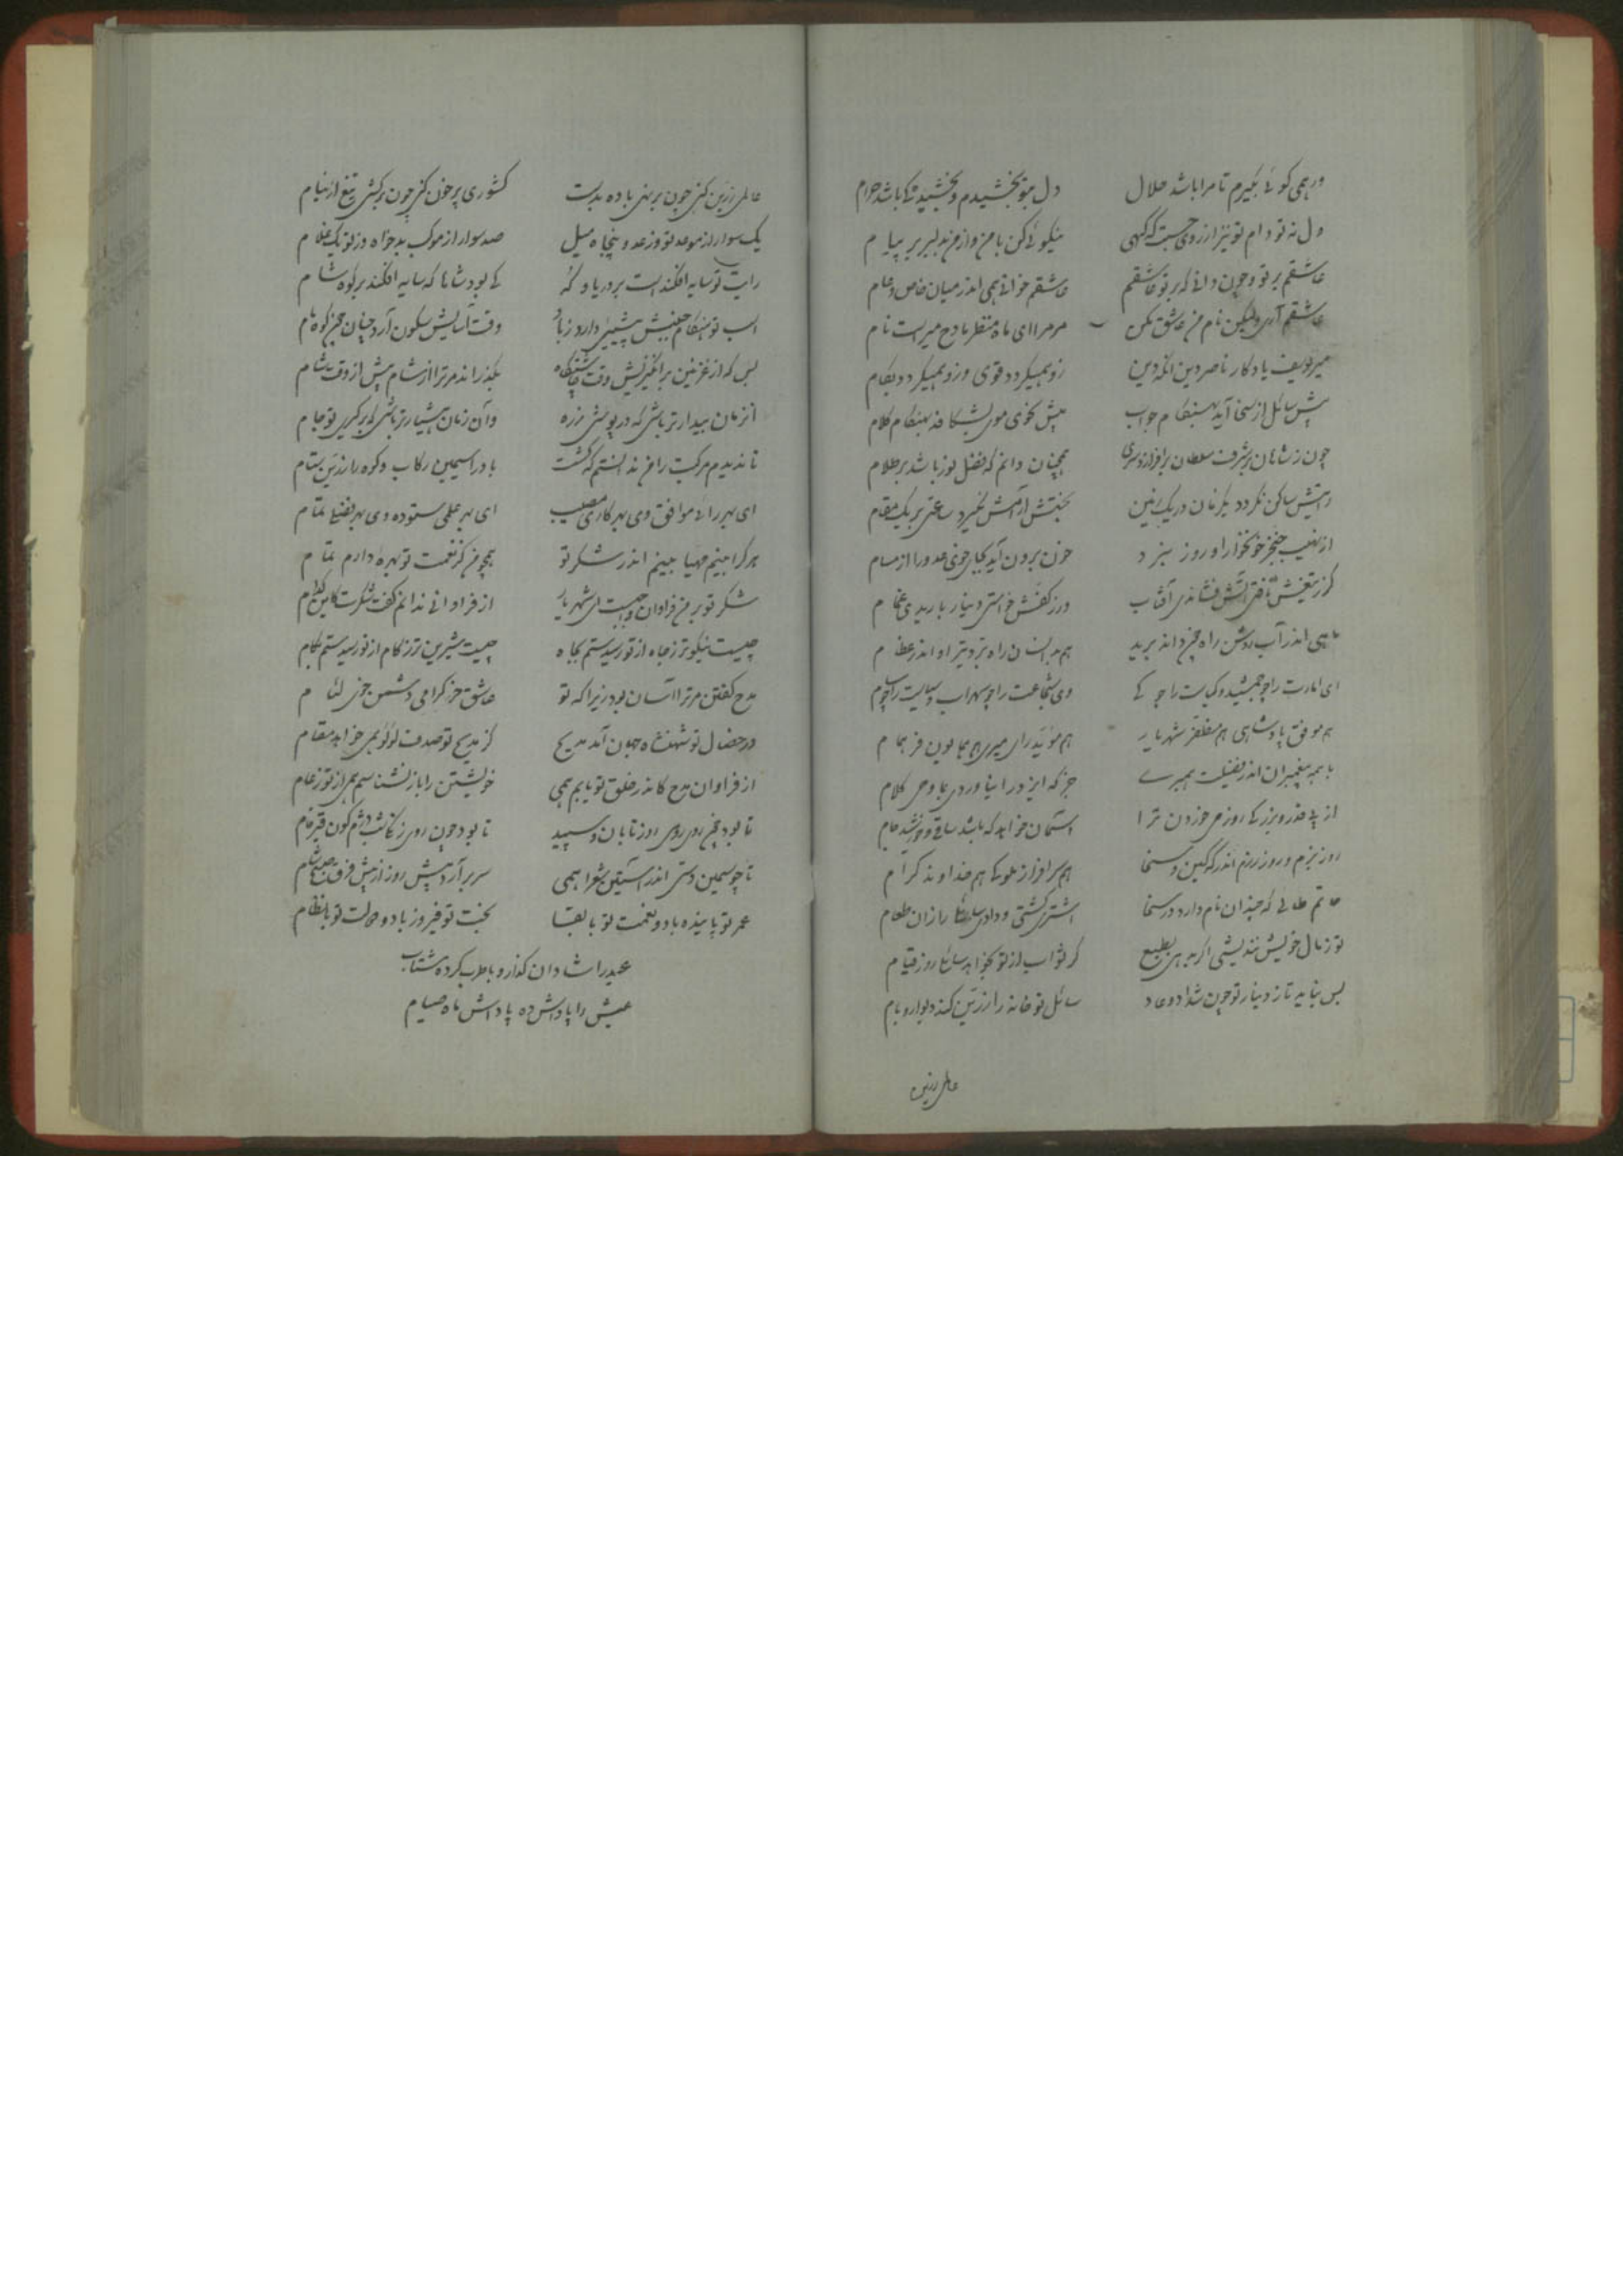 ور همی گوئی بگیرم تا مرا باشد حلال دل بتو بخشیدم و بخشیده کی باشد حرام
دل بتو دادم تو نیز از روی نیکوئی کن با من و از من دلبر پیام
عاشقم بر تو و چون دانی که بر تو عاشقم عاشقم خوانی همی اندر میان خاص و عام
عاشقم آری ولیکن نام من عاشق مکن مر مرا ای ماه منظر مادح میرست نام
میر یوسف یادگار ناصر دین آنکه دین زو همیگردد قوی وزو همیگردد بکام
پیش سائل از سخا آید بهنگام جواب پیش موی بشکافد بهنگام کلام
چون ز شاهان بر شرف سلطان برافرازد سری همچنان دانم که فضل نور باشد بر ظلام
رایتش ساکن نگردد یکزمان در یک زمین بختش آرامش نگیرد ساعتی بر یک مقام
از نهیب خنجر خونخوار او روز نبرد خون برون آید بجای خوی عدو را از مسام
گر ز تیغش آتش فشاندی آفتاب ور ز کفش خواستی دینار باریدی غمام
ماهی اندر آب روشن راه داند برید هم بدانسان راه برد تیر او اندر عظام
ای امارت را چو جمشید و کیاست را چو کی وی شجاعت را چو سهراب و سیاست را چو سام
هم موفق پادشاهی هم مظفر شهریار هم مؤید رای میری هم همایون فر همام
با همه پیغمبران اندر فضیلت همبری جز که ایزد را نیاوردی بجا وحی کلام
از پی قدر و بزرگی روز می خوردن ترا آسمان خواهد که باشد ساقی و خورشید جام
روز بزم و روز رزم اندر که کین و سخا هم سرافراز ملوکی هم خداوند کرام
حاتم طائی که چندان نام دارد در سخا اشتری کشتی و دادی سائلان را زان طعام
تو ز مال خویش نندیشی اگر بدهی بطبع گر ثواب از تو بخواهد سائلی روز قیام
بس نیاید تا ز دینار تو چون شداد و عاد سائل تو خانه را زرین کند دیوار و بام
عالمی زرین
عالمی زرین کنی چون بر نهی باده بدست کشوری پر خون کنی چون برکشی تیغ از نیام
یک سوار از موکب تو وز عدو پنجاه میل صد سوار از موکب بدخواه وز تو یک غلام
رایت تو سایه افکندست بر دریا و که کی بود شاها که سایه افکند بر کوه شام
اسب تو هنگام جنبش پیشی دارد ز باد وقت آسایش سکون آرد چنان چون کوه
بس که از غزنین برانگیزیش وقت چاشتگاه بگذراند مر ترا از شام پیش از وقت شام
آنزمان بیدارتر باشی که در پوشی زره وان زمان هشیارتر باشی که برگیری تو جام
تا ندیدم مرکبت را من ندانستم که گشت باد را سیمین رکاب و کوه را زرین ستام
ای بهر رائی موافق وی بهر کاری مصیب ای بهر علمی ستوده وی بهر فضلی تمام
هر کرا بینم مهیا بینم اندر شکر تو همچو من کز نعمت تو بهره دارم تمام
شکر تو بر من فراوان واجبست ای شهریار از فراوانی ندانم گفت شکرت کدام
چیست نیکوتر ز جاه از تو رسیدستم بجاه چیست شیرین تر ز کام از تو رسیدستم بکام
مدح گفتن مر ترا آسان بود زیرا که تو عاشق خوی کرامی دشمن خوی لئام
در خصال تو شهنشاه جهان آمد مدیح کز مدیح تو صدف لؤلؤ همی خواهد مقام
از فراوان مدح کاندر خلق تو یابم همی خویشتن را باز نشناسم همی از تو ز
تا بود روی روز تابان و سپید تا بود چون روی زنگی شب دژم گون قیرفام
تا چو سیمین دستی اندر آستین شعرا همی سر برآرد پیش روز از پیش فرق
عمر تو پاینده باد و نعمت تو با بقا بخت تو فیروز باد و دولت تو با نظام
عید را شادان گذار و با طرب کرده شتاب
عیش را پاداش ده پاداش ماه صیام